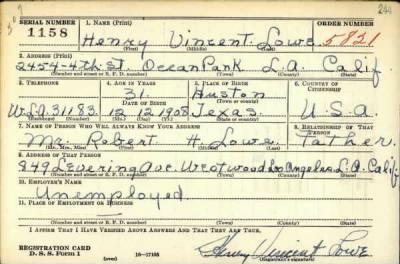 244
SERIAL NUMBER 1. NAME (Print) ORDER NUMBER
1158 Henry Vincent Lowe 5821
(First) (Middle) (Last)
2. ADDRESS (Print)
2454-4th St. Ocean Park L.A. Calif
(Number and street or R. F. D. number) (Town) (County) (State)
3. TELEPHONE 4. AGE IN YEARS 5. PLACE OF BIRTH 6. COUNTRY OF CITIZENSHIP
31 Huston
DATE OF BIRTH (Town or county)
W.L.A. 31183 12 12 1908 Texas U.S.A.
(Exchange) (Number) (Mo.) (Day) (Yr.) (State or country)
7. NAME OF PERSON WHO WILL ALWAYS KNOW YOUR ADDRESS 8. RELATIONSHIP OF THAT PERSON
Mr. Robert H. Lowe Father
(Mr., Mrs., Miss) (First) (Middle) (Last)
9. ADDRESS OF THAT PERSON
849 Levering Ave. Westwood Los Angeles L.A. Calif.
(Number and street or R. F. D. number) (Town) (County) (State)
10. EMPLOYER'S NAME
Unemployed
11. PLACE OF EMPLOYMENT OR BUSINESS
(Number and street or R. F. D. number) (Town) (County) (State)
I AFFIRM THAT I HAVE VERIFIED ABOVE ANSWERS AND THAT THEY ARE TRUE.
REGISTRATION CARD
D. S. S. Form 1 (over) 16-17105 Henry Vincent Lowe